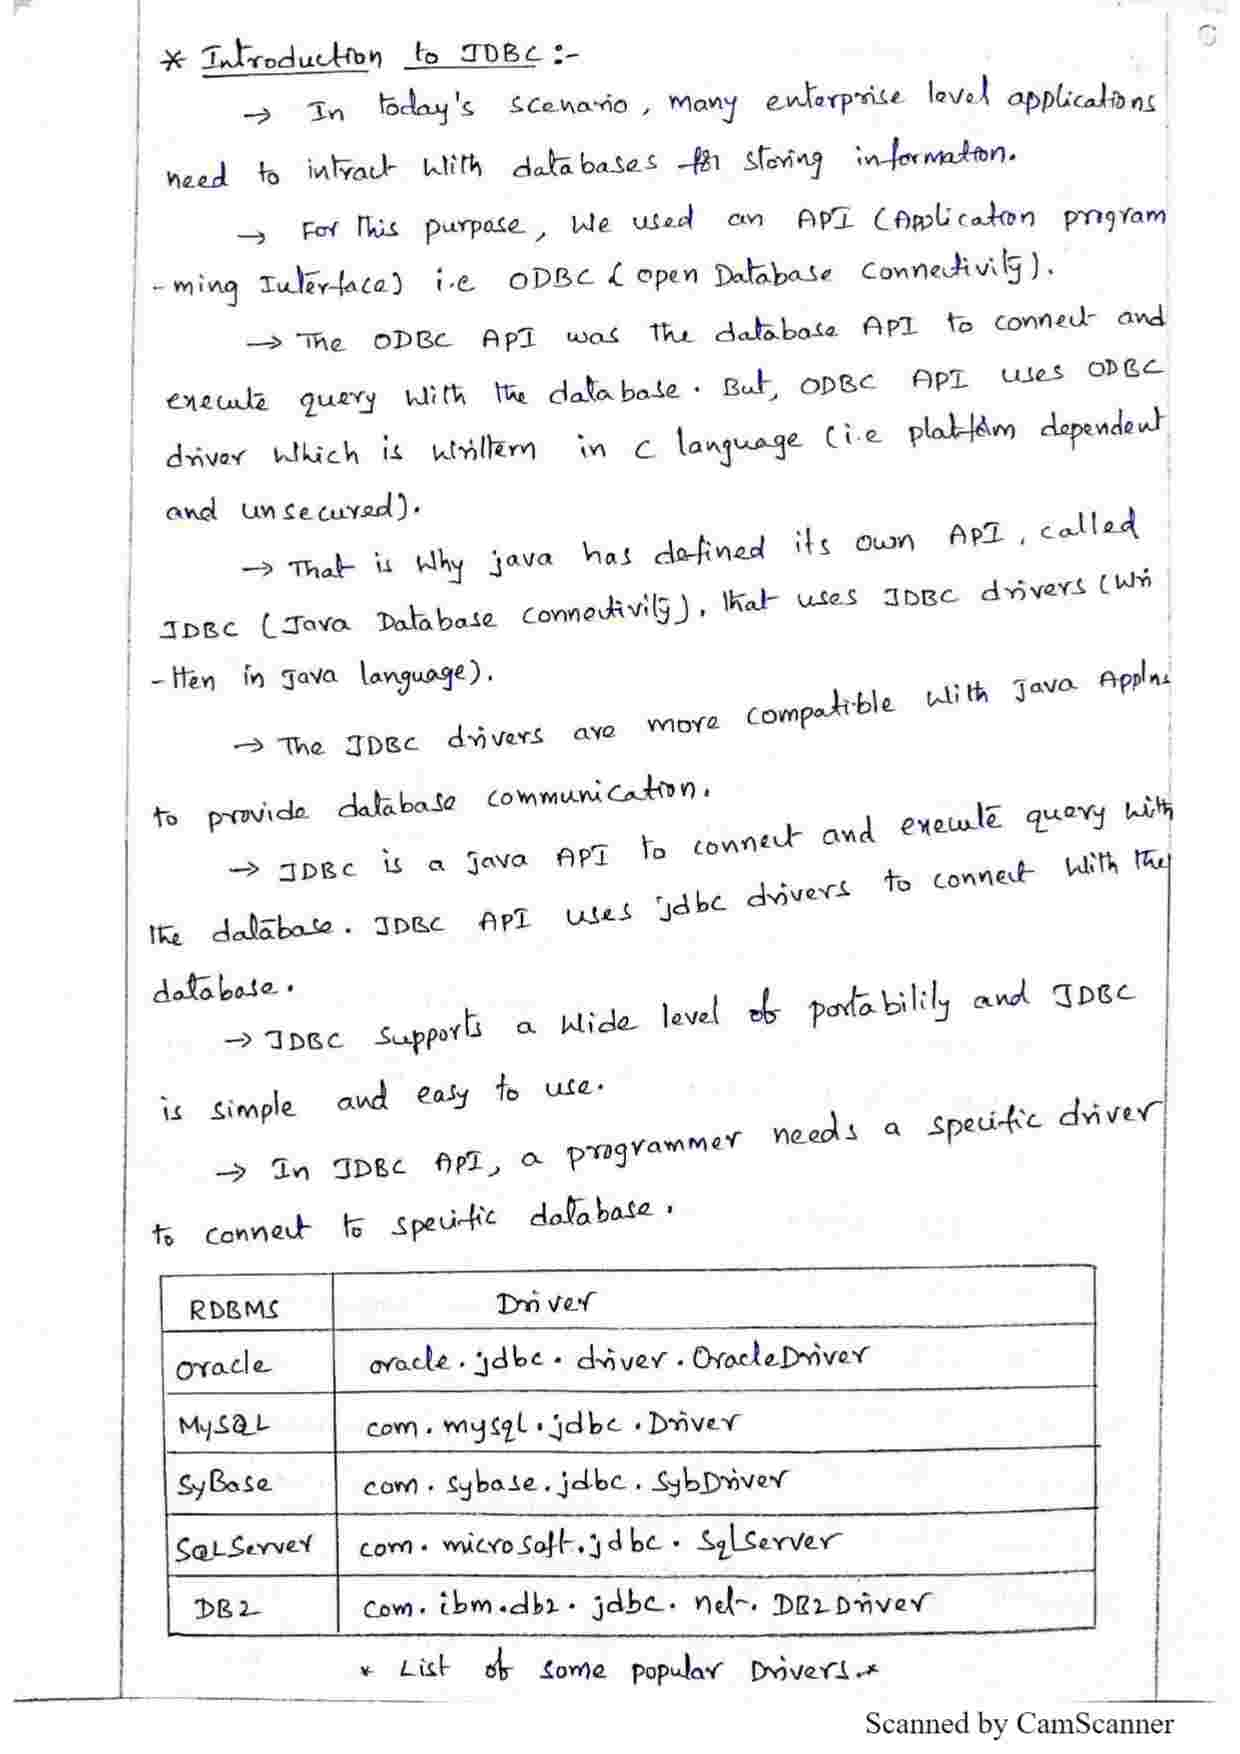 * Introduction to JDBC :-
→ In today's scenario, many enterprise level applications
need to intract with databases for storing information.
→ For this purpose, we used an API (Application program
-ming Interface) i.e ODBC ( open Database connectivity).
→ The ODBC API was the database API to connect and
execute query with the database. But, ODBC API uses ODBC
driver which is writtern in c language (i.e platform dependent
and unsecured).
→ That is why java has defined its own API, called
JDBC (Java Database connectivity), that uses JDBC drivers (wri
-tten in java language).
→ The JDBC drivers are more compatible with java Applns
to provide database communication.
→ JDBC is a java API to connect and execute query with
the database. JDBC API uses jdbc drivers to connect with the
database.
→ JDBC supports a wide level of portability and JDBC
is simple and easy to use.
→ In JDBC API, a programmer needs a specific driver
to connect to specific database.
RDBMS Driver
oracle oracle.jdbc.driver.OracleDriver
MySQL com.mysql.jdbc.Driver
SyBase com.sybase.jdbc.SybDriver
SQLServer com.microsoft.jdbc.SqlServer
DB2 com.ibm.db2.jdbc.net.DB2Driver
* List of some popular Drivers.*
Scanned by CamScanner